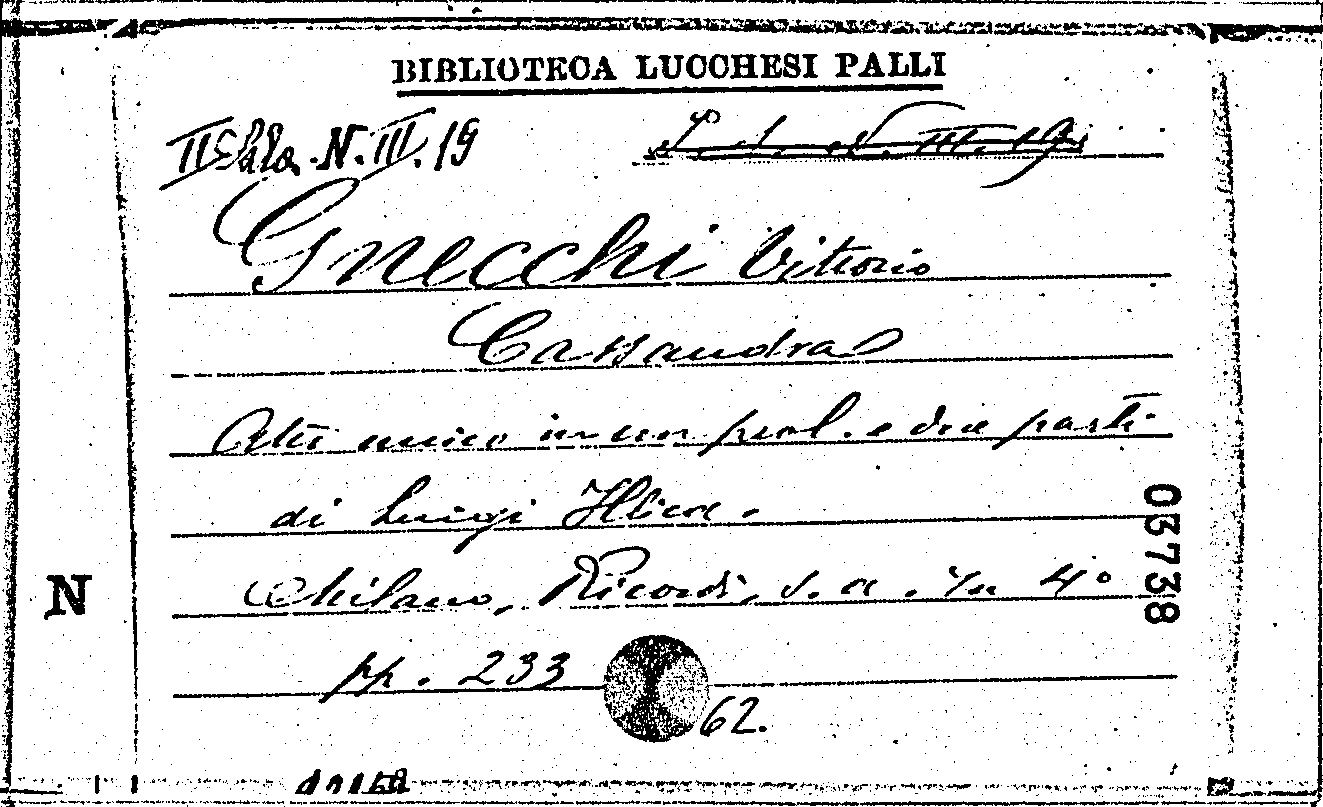 BIBLIOTECA LUCCHESI PALLI
II Sala. N. III. 19
S. d. N. III. 19
Gnecchi Vittorio
Cassandra
Atto unico in un prol. e due parti
di Luigi Illica.
03738
Milano, Ricordi, s. a. in 4°
N
pp. 233
62.